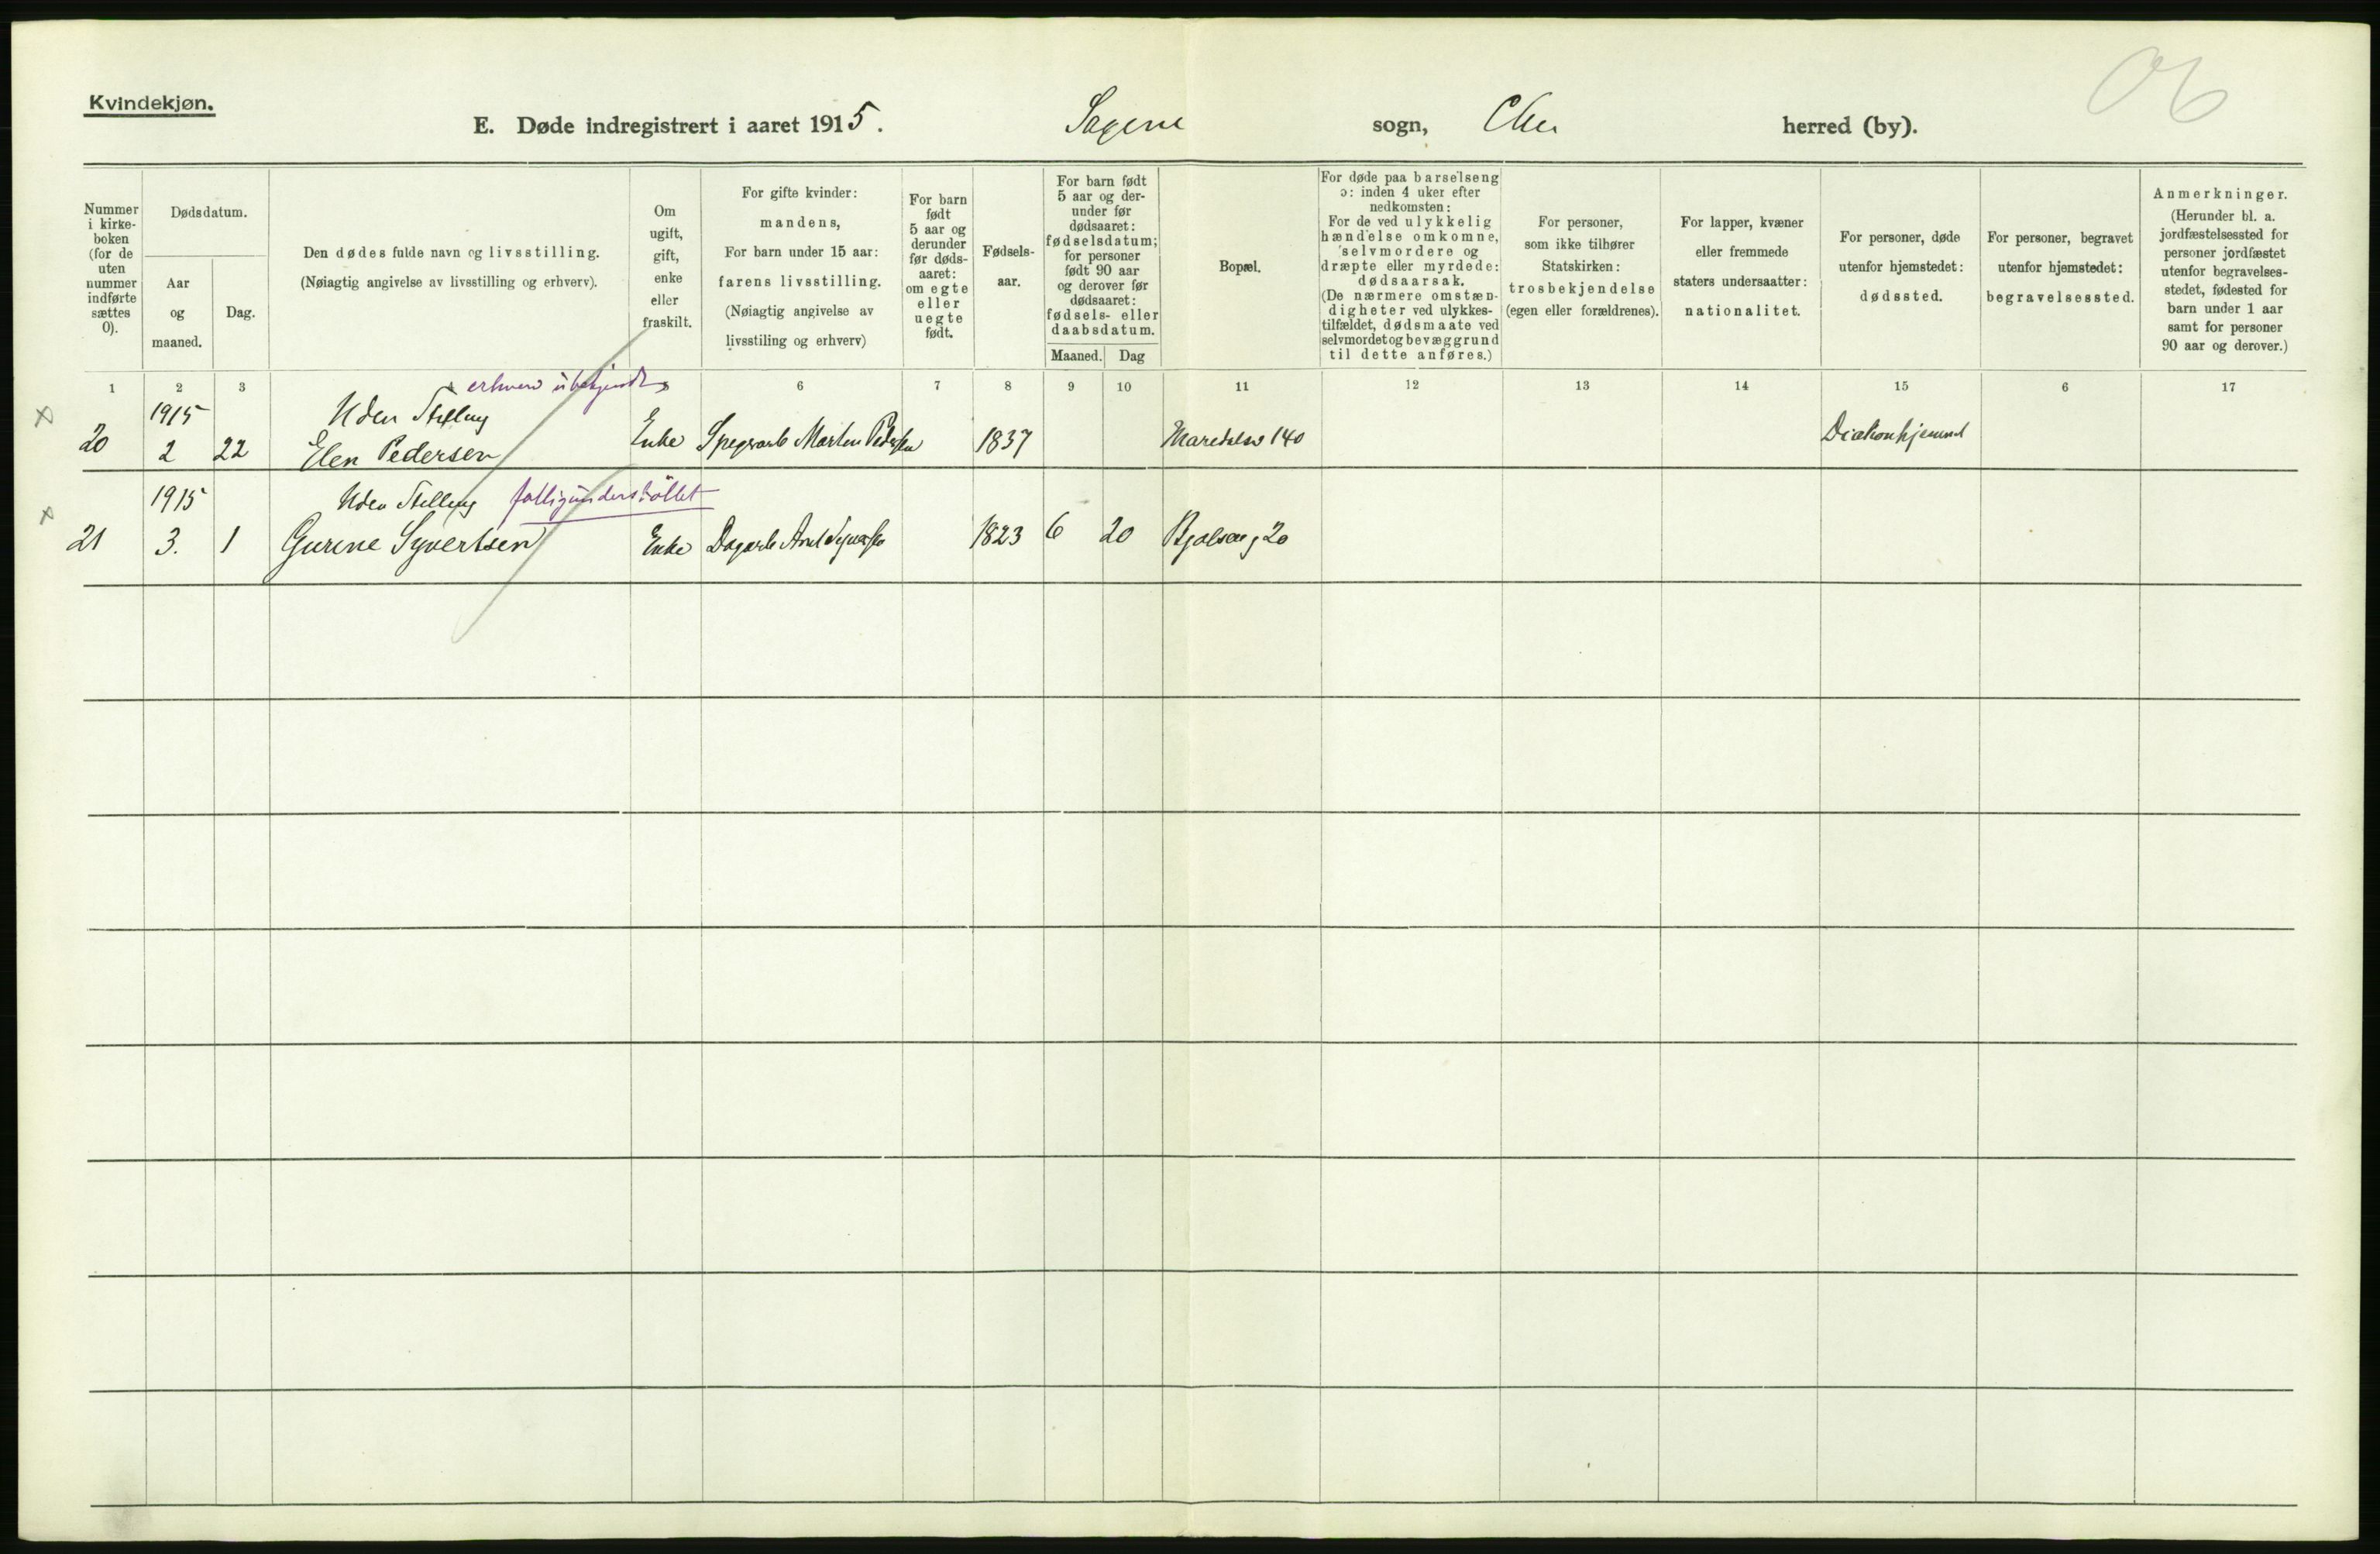 Kvindekjøn.
E. Døde indregistrert i aaret 1915. Sagene sogn, Chra herred (by).
Nummer i kirke-boken (for de uten nummer indførte sættes 0).
Dødsdatum.
Aar og maaned.
Dag.
Den dødes fulde navn og livsstilling.
(Nøiagtig angivelse av livsstilling og erhverv).
Om ugift, gift, enke eller fraskilt.
For gifte kvinder:
mandens,
For barn under 15 aar:
farens livsstilling.
(Nøiagtig angivelse av
livsstiling og erhverv)
For barn født 5 aar og derunder før døds-aaret: om egte eller uegte født.
Fødsels-aar.
For barn født 5 aar og der-under før dødsaaret: fødselsdatum; for personer født 90 aar og derover før dødsaaret: fødsels- eller daabsdatum.
Maaned. Dag
Bopæl.
For døde paa barselseng
ɔ: inden 4 uker efter
nedkomsten:
For de ved ulykkelig
hændelse omkomne,
selvmordere og
dræpte eller myrdede:
dødsaarsak.
(De nærmere omstæn-
digheter ved ulykkes-
tilfældet, dødsmaate ved
selvmordet og bevæggrund
til dette anføres.)
For personer,
som ikke tilhører
Statskirken:
trosbekjendelse
(egen eller forældrenes).
For lapper, kvæner
eller fremmede
staters undersaatter:
nationalitet.
For personer, døde
utenfor hjemstedet:
dødssted.
For personer, begravet
utenfor hjemstedet:
begravelsessted.
Anmerkninger.
(Herunder bl. a.
jordfæstelsessted for
personer jordfæstet
utenfor begravelses-
stedet, fødested for
barn under 1 aar
samt for personer
90 aar og derover.)
1 2 3 6 7 8 9 10 11 12 13 14 15 6 17
erhverv ubekjendt
1915 Uden Stilling
20 2 22 Elen Pedersen Enke Martin Pedersen 1837 Maridalsv 140 Diakonhjemmet
1915 Uden Stilling fattigunderstöttet
21 3. 1 Gurine Syvertsen Enke Dagarb 1823 6 20 Bjølseng 20